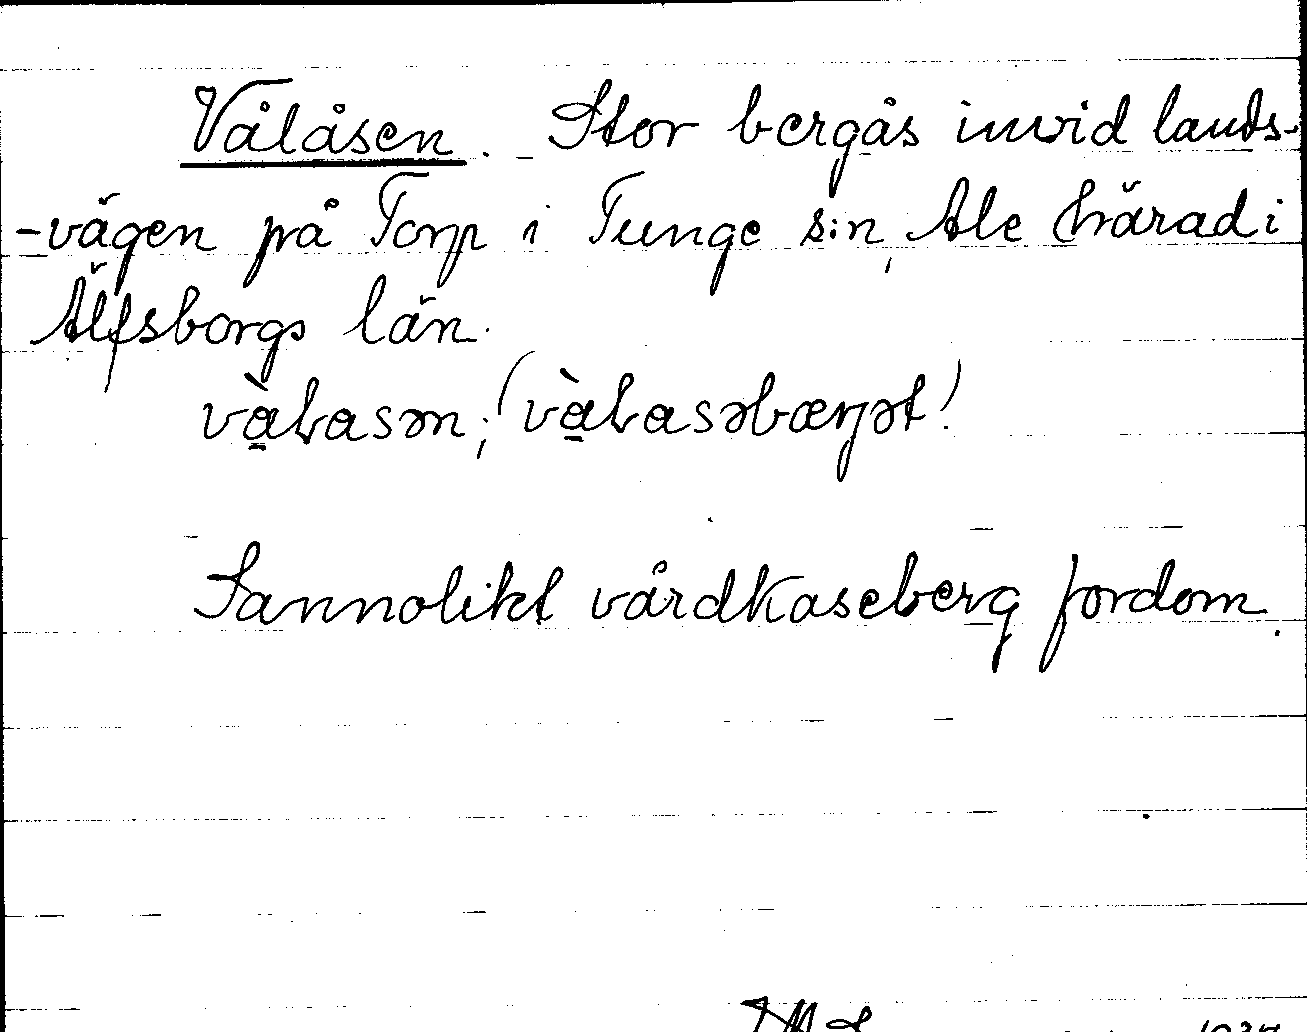 Vålåsen. Stor bergås invid lands-
-vägen på Torp i Tunge s:n, Ale härad i
Älfsborgs län.
vàLasən; (vàLasəbærjət)
Sannolikt vårdkaseberg fordom.